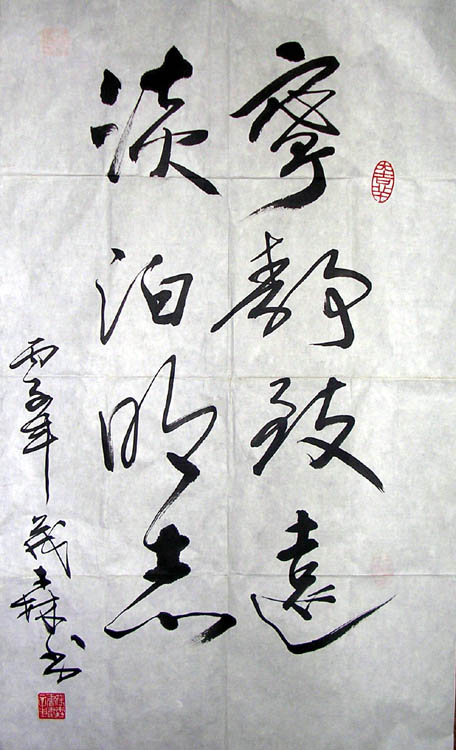 寧靜致遠
淡泊明志
丙子年 茂森书